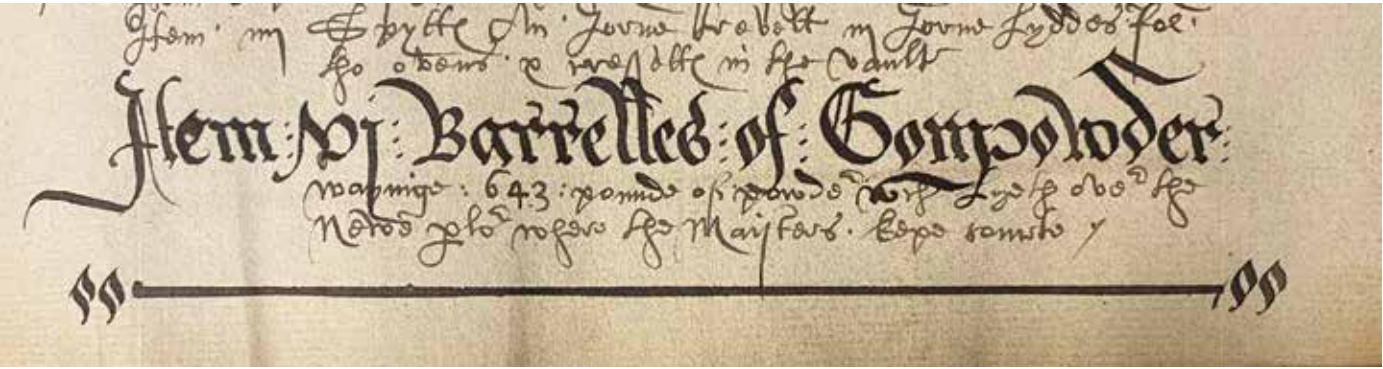 Item iiij Spytte An Iorne trevett iij Iorne Lyddes for
the ovens x tressells in the vault
Item : vj : Barrelles : of : Gonpowder :
wayinge : 643 : pounde of powder wch Lyeth over the
Newe plor where the Maisters kepe courte